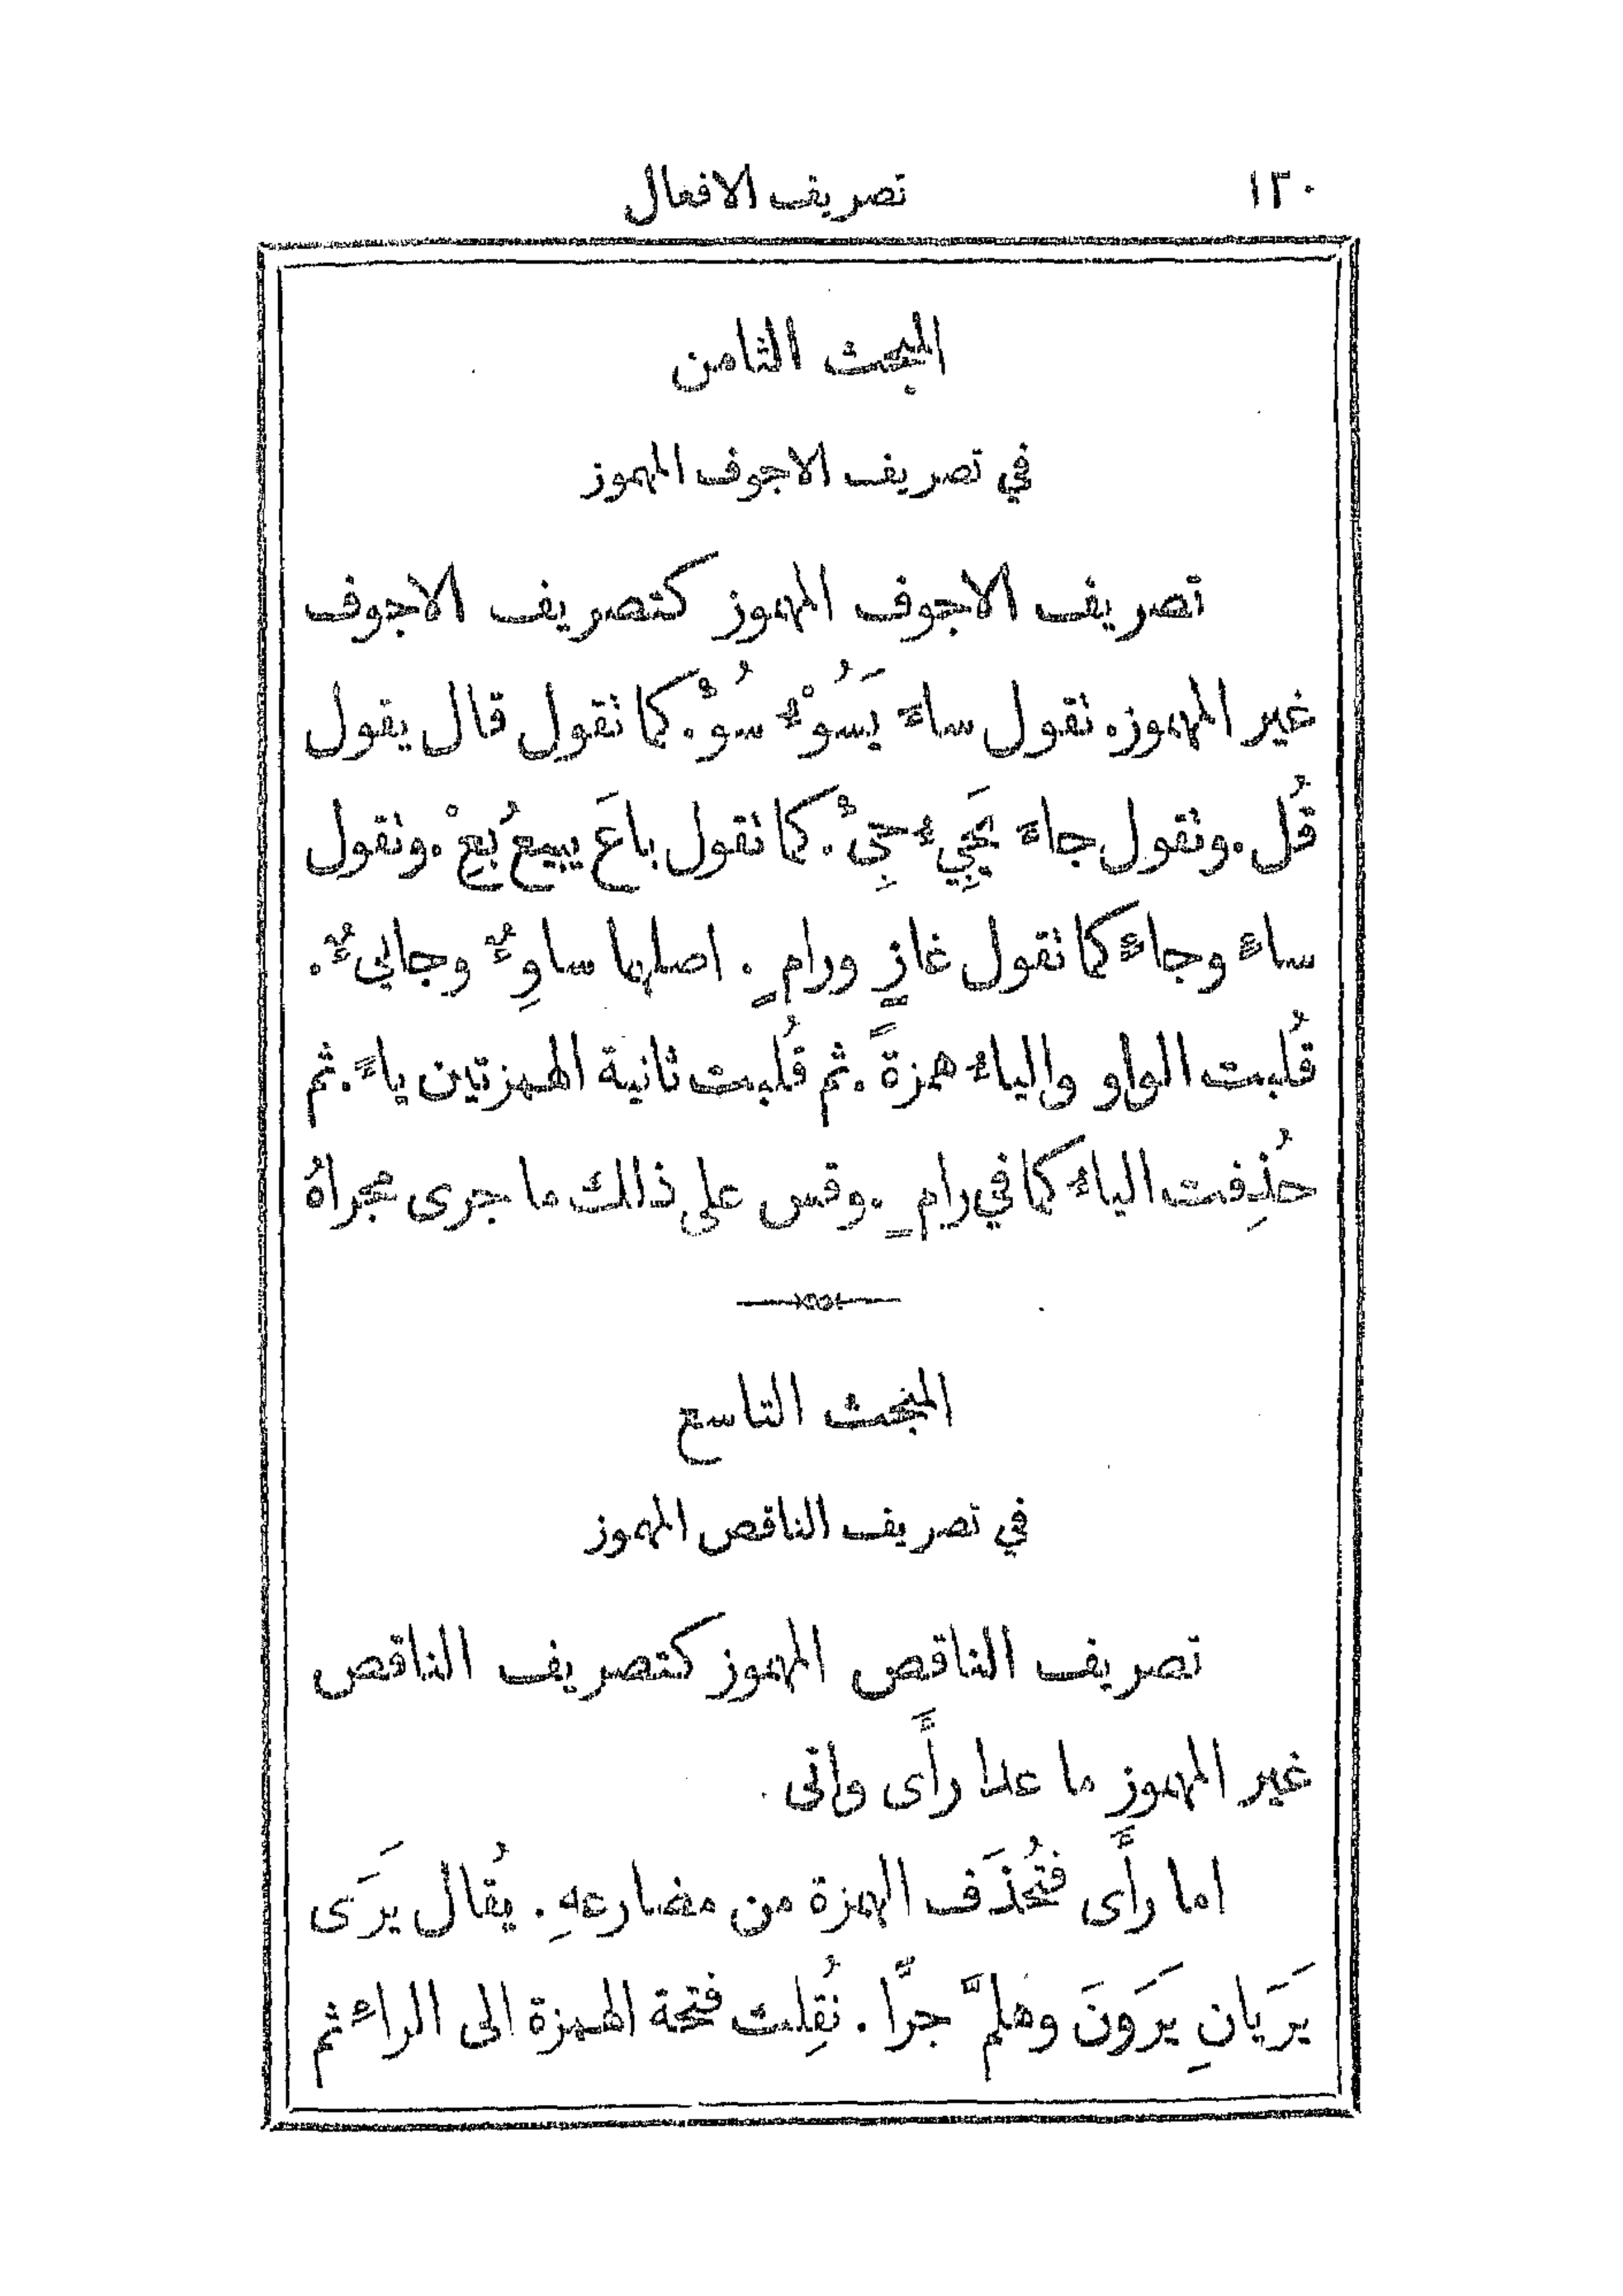 ١٢٠ تصريف الافعال
المبحث الثامن
في تصريف الاجوف المهموز
تصريف الاجوف المهموز كتصريف الاجوف
غير المهموز. نقول ساءَ يَسُوْءُ سُوْءْ. كما نقول قال يقول
قُل. ونقول جاءَ يَجِيءُ جِئْ. كما نقول باعَ يبيعُ بِعْ. ونقول
ساءٍ وجاءٍ كما نقول غازٍ ورامٍ. اصلهما ساوِءٌ وجايِءٌ.
قُلبت الواو والياء همزةً. ثم قُلبت ثانية الهمزتين ياءً. ثم
حُذِفت الياء كما في رامٍ. وقس على ذلك ما جرى مجراهُ
المبحث التاسع
في تصريف الناقص المهموز
تصريف الناقص المهموز كتصريف الناقص
غير المهموز ما عدا رأَى واتى.
اما رأَى فتُحذَف الهمزة من مضارعهِ. يُقال يَرَى
يَرَيانِ يَرَونَ وهلمَّ جرًّا. نُقِلت فتحة الهمزة الى الراء ثم